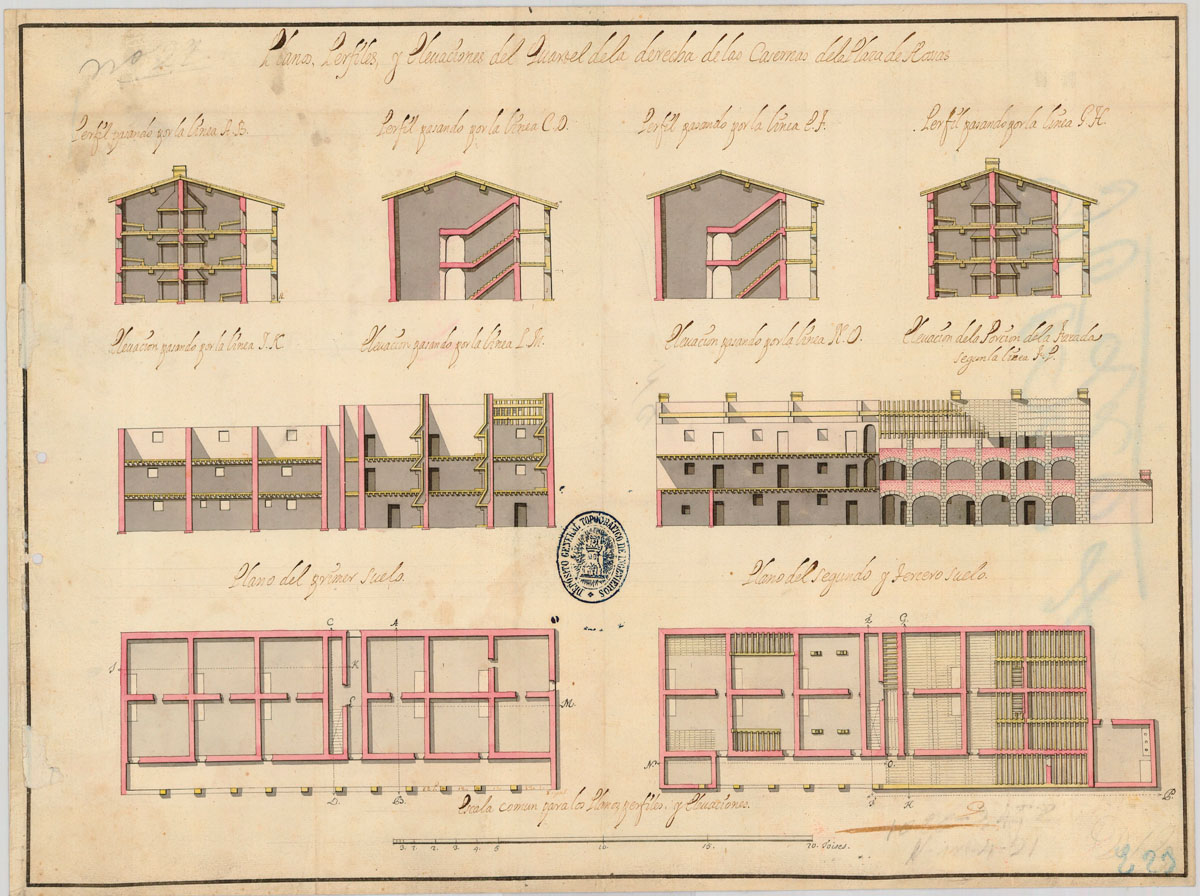 Plano, Perfiles, y Elevaciones del Quartel dela derecha de las Casernas dela Plaza de Rosas
Perfil pasando por la linea A.B.
Perfil pasando por la linea C.D.
Perfil pasando por la linea E.F.
Perfil pasando por la linea G.H.
Elevacion pasando por la linea I.K
Elevacion pasando por la linea L.M.
Elevacion pasando por la linea N.O.
Elevacion dela Porcion dela Facada
segun la linea F.P.
DEPÓSITO GENERAL TOPOGRÁFICO DE INGENIEROS
Plano del primer suelo.
Plano del segundo y tercero suelo.
C
A
E
G
I
K
L
M
N
O
D.
B
F
H
P.
Escala comun para los Planos, perfiles, y Elevaciones.
1 2 3 4 5 10 15 20 Toises.